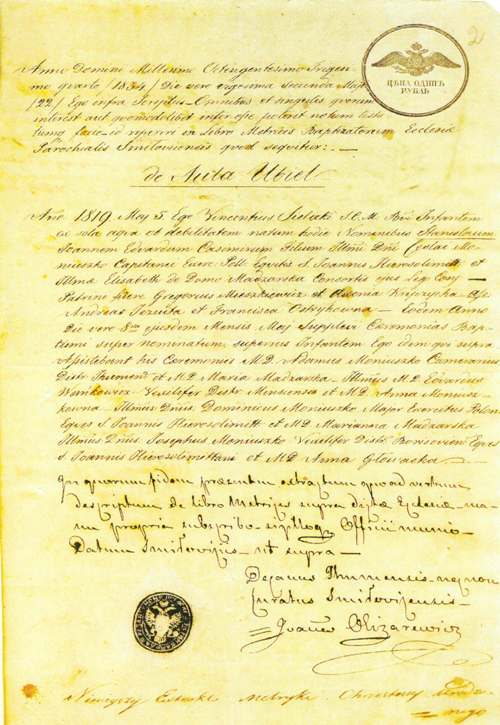 2
ЦѢНА ОДИНЪ
РУБЛЬ
Anno Domini Millesimo Octingentesimo Trigesi-
mo quarto /1834/ Die vero vigesima secunda Maji
/22/ Ego infra scriptus Omnibus et singulis quorum
interest aut quomodolibet interesse poterit notum testa-
tumq facio id reperiri in Libro Metrices Baptisatorum Ecclesiæ
Parochialis Smiloviensis quod sequitur: —
de Aula Ubiel
Ano 1819 Maj 5 Ego Vincentius S.C.M. Infantem
ex sola aqua et debilitatem natum hodie Nominibus Stanislaum
Joannem Edvardum Casimirum Filium Illmi Dni Ceslai Mo-
niuszko Capitanei Exer. Poll Equitis S Joannis Hierosolimitt et
Illma Elisabeth de Domo Madzarska Consortis ejus Leg Conj —
Patrini fuere Gregorius Moszkiewicz et
Andreas et Francisca — Eodem Anno
Die vero 8va ejusdem Mensis Maj Supplevi Ceremonias Bap-
tismi super nominatum supernus Infantem Ego idem qui supra
Assistebant his Ceremoniis M.D. Adamus Moniuszko Camerarius
Distr et M.D. Maria Madzarska — Illmus M.D. Edvardus
Wankowicz Vexillifer Distr Minscensis et M.D. Anna Moniusz-
kowna — Illmus Dnus Dominicus Moniuszko Major Exercitus Polon
Eques S Joannis Hierosolimitt et M.D. Marianna Madzarska
Illmus Dnus Josephus Moniuszko Vexillifer Distr Borisovien Eques
S Joannis Hierosolimittani et M.D. Anna —
In quorum fidem præsentem extractum quoad verbum
descriptum de libro Metrices supra dictæ Ecclesiæ ma-
nu propria subscribo sigilloq Officii munio —
Datum Smilovijis ut supra —
Decanus Ihumensis nec non
Curatus Smilovijensis —
Olizarewicz
Metryki